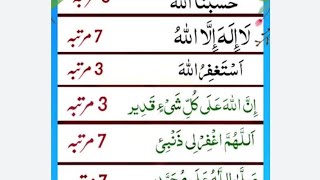 حَسْبُنَا اللّٰهُ مرتبہ
لَا إِلٰهَ إِلَّا اللّٰهُ 7 مرتبہ
اَسْتَغْفِرُ اللّٰهَ 3 مرتبہ
اِنَّ اللّٰهَ عَلٰی كُلِّ شَیْءٍ قَدِیر 3 مرتبہ
اَللّٰهُمَّ اغْفِرْ لِی ذَنْبِیْ 7 مرتبہ